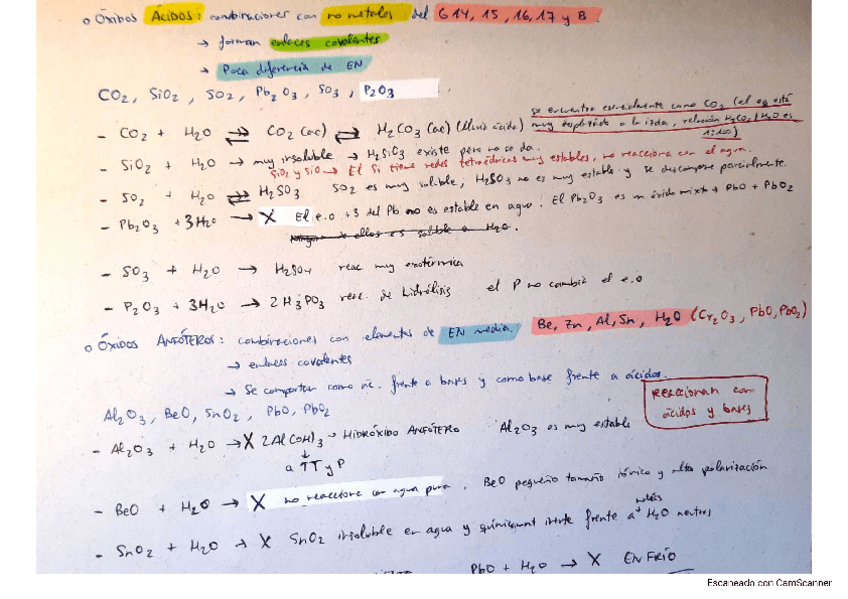 o Óxidos Ácidos: combinaciones con no metales del G 14, 15, 16, 17 y B.
→ forman enlaces covalentes
→ Poca diferencia de EN
CO2, SiO2, SO2, Pb2O3, SO3, P2O3
- CO2 + H2O ⇌ CO2 (ac) ⇌ H2CO3 (ac) (Ácido) se encuentra como CO2 (el eq está muy desplazado a la izda, relación H2CO3/H2O es 1:100)
- SiO2 + H2O → muy insoluble → H2SiO3 existe pero no se da.
SiO2 y SiO → El Si tiene redes tetraédricas muy estables, no reacciona con el agua.
- SO2 + H2O ⇌ H2SO3 SO2 es muy soluble; H2SO3 no es muy estable y se descompone parcialmente.
- Pb2O3 + 3H2O → X El e.o +3 del Pb no es estable en agua. El Pb2O3 es un óxido mixto PbO + PbO2
de ellos es soluble en H2O.
- SO3 + H2O → H2SO4 reac muy exotérmica
- P2O3 + 3H2O → 2H3PO3 reac. de hidrólisis el P no cambia el e.o
o Óxidos ANFÓTEROS: combinaciones con elementos de EN media. Be, Zn, Al, Sn, H2O (Cr2O3, PbO, PbO2)
→ enlaces covalentes
→ Se comportan como ác. frente a bases y como base frente a ácidos.
Reaccionan con ácidos y bases
Al2O3, BeO, SnO2, PbO, PbO2
- Al2O3 + H2O → X 2Al(OH)3 → HIDRÓXIDO ANFÓTERO Al2O3 es muy estable
↓
a ↑T y P
- BeO + H2O → X no reacciona con agua pura. BeO pequeño tamaño iónico y alta polarización
- SnO2 + H2O → X SnO2 insoluble en agua y inerte frente a H2O neutros
PbO + H2O → X EN FRÍO
Escaneado con CamScanner